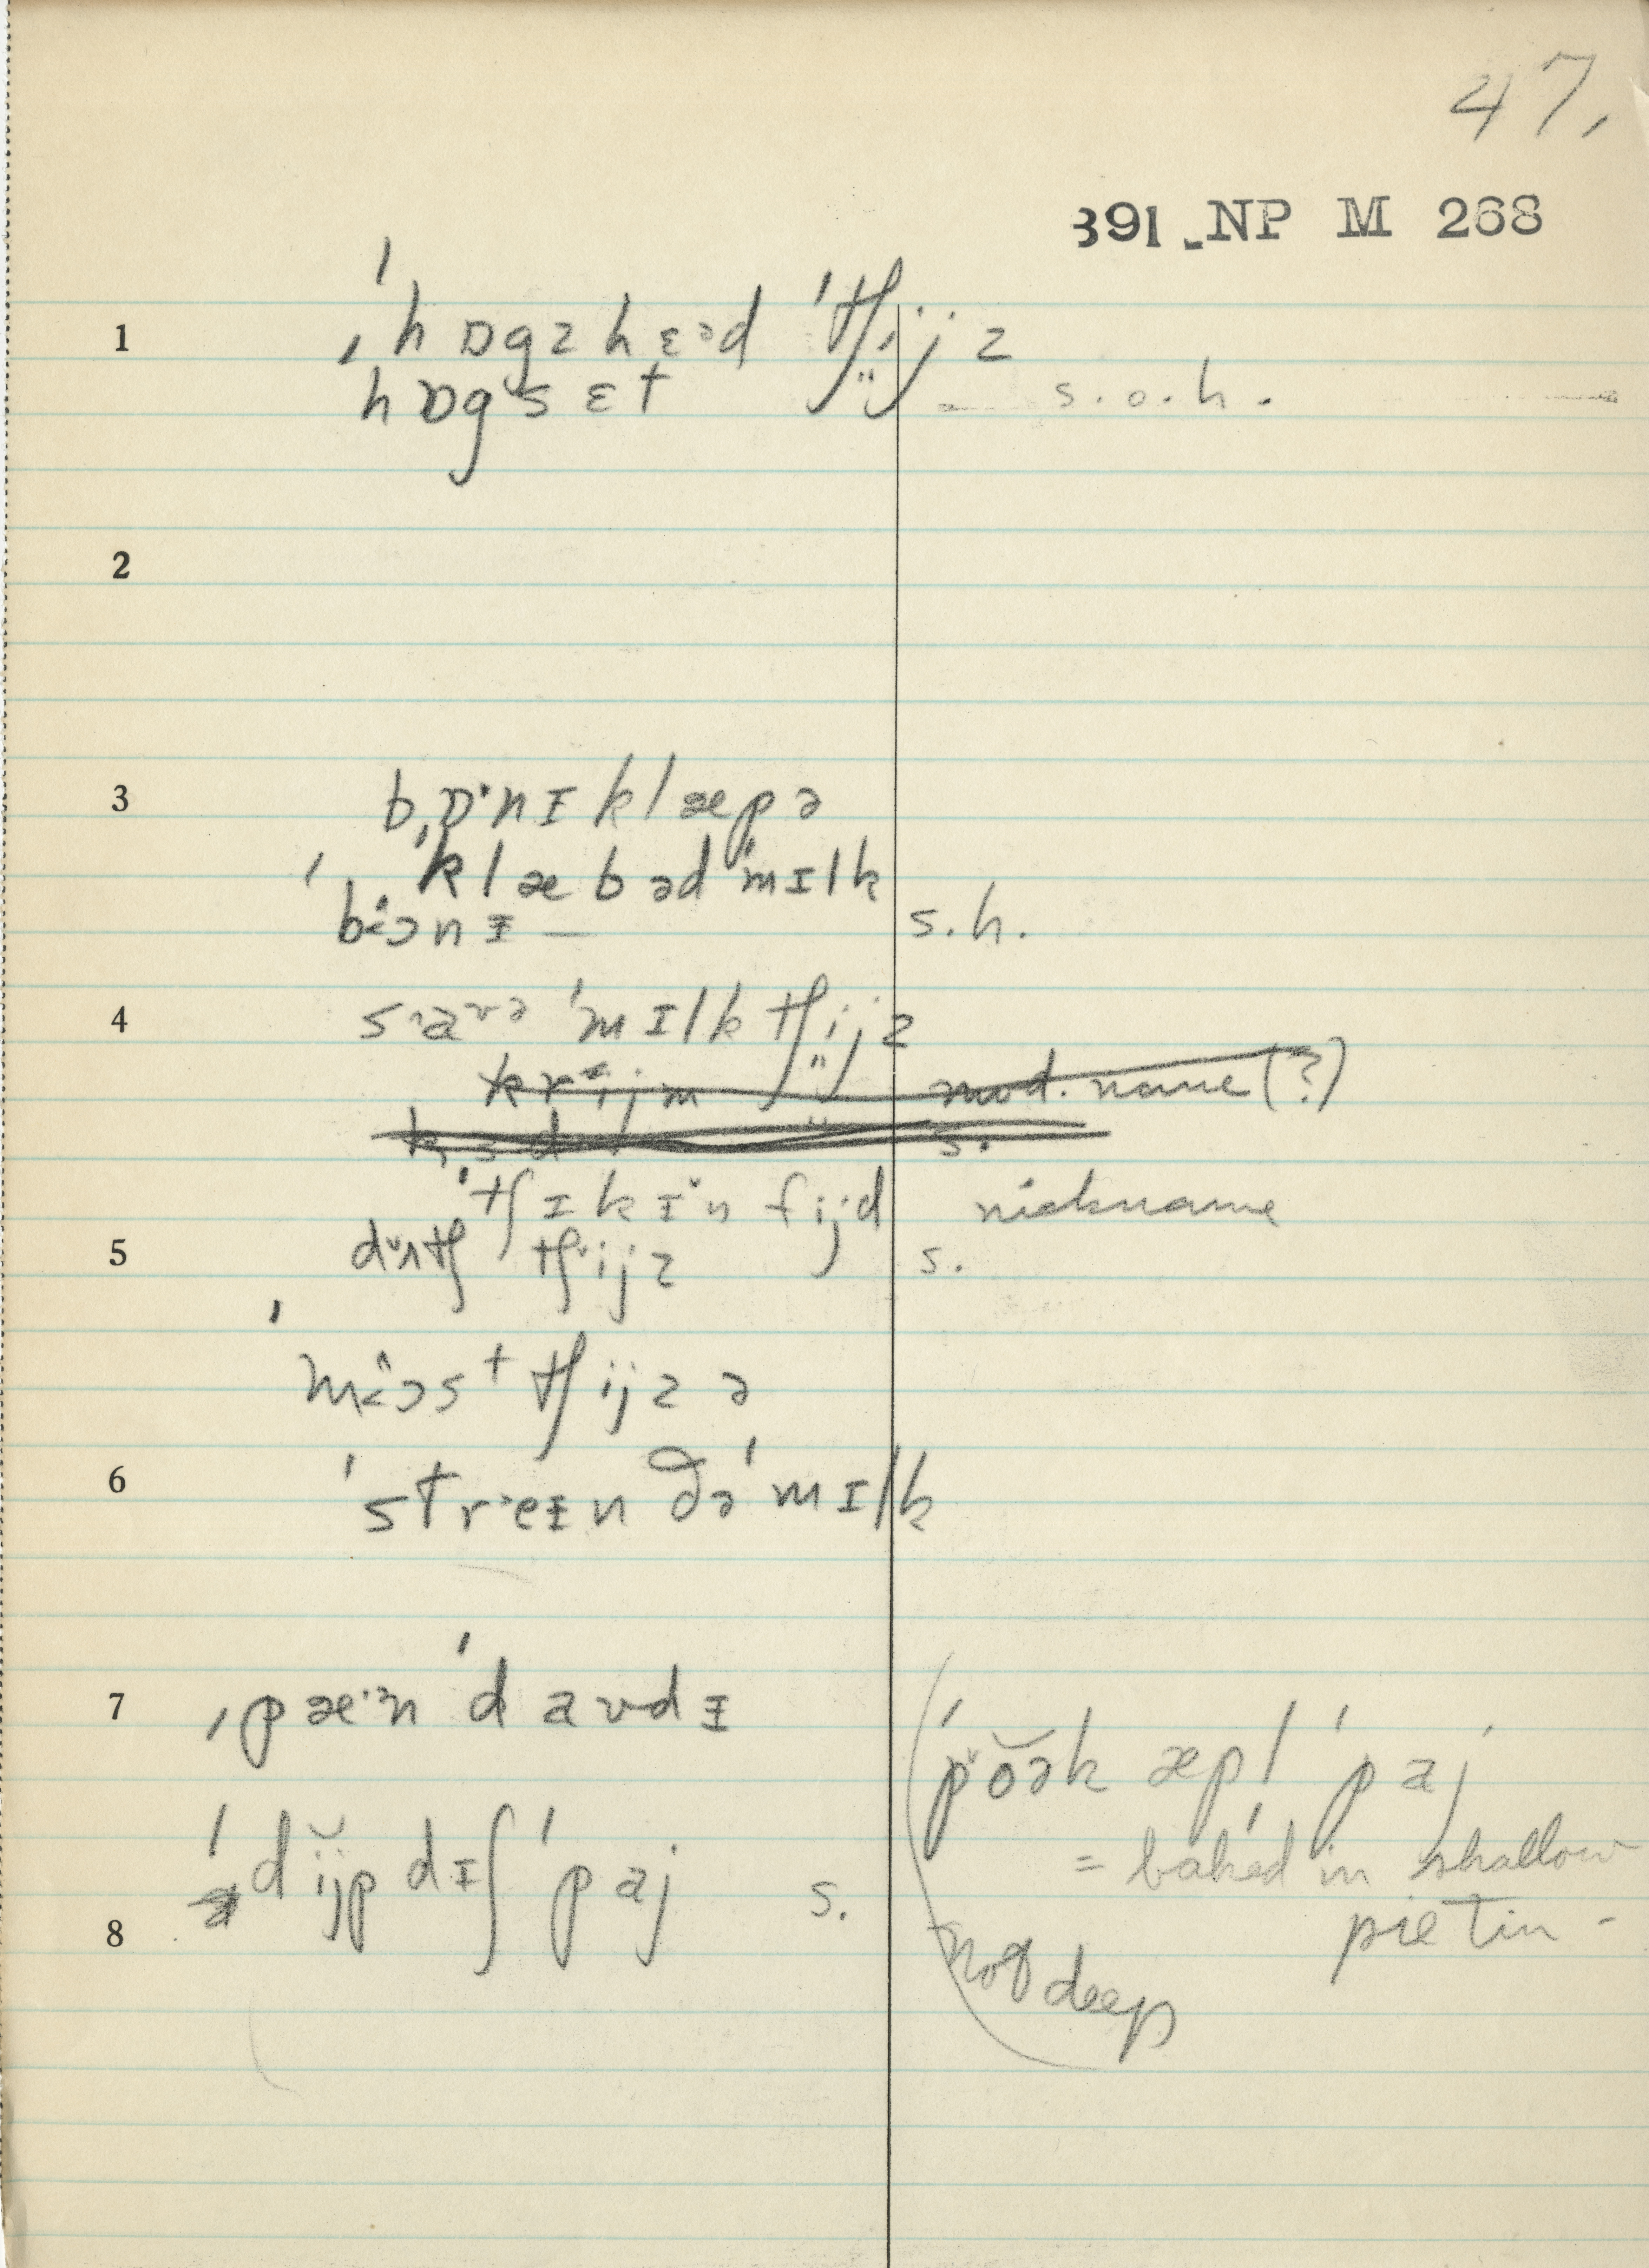 47.
391 NP M 268
1 ˌhɒgzhɛəd ˈtʃijz
hɒgsɛt s.o.h.
2
3 bɒˑnɪklæpə
ˈklæbəd ˈmɪlk
bɔnɪ — s.h.
4 saʊə ˈmɪlk tʃijz
krijm mod. name (?)
s.
ˈtʃɪkɪn fijd nickname
5 dʌtʃ tʃijz s.
mɔst tʃijzə
6 ˈstreɪn ðəˈmɪlk
7 ˌpæˑn ˈdaʊdɪ
ˈpŏək æpl ˈpaj
= baked in shallow
pie tin -
not deep
8 ˈdijp dɪʃ ˈpaj s.